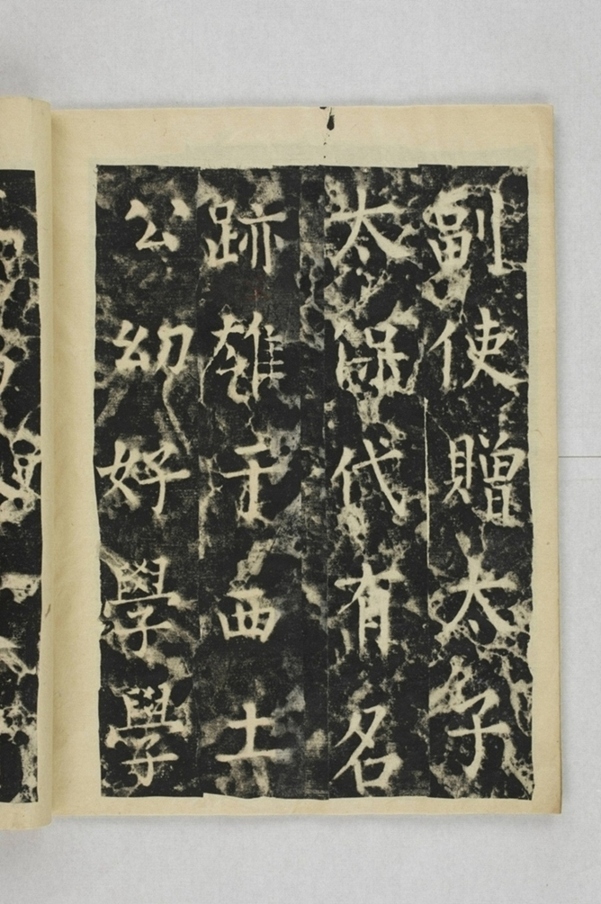 副使贈太子
太代有名
跡雄于西土
公幼好學學